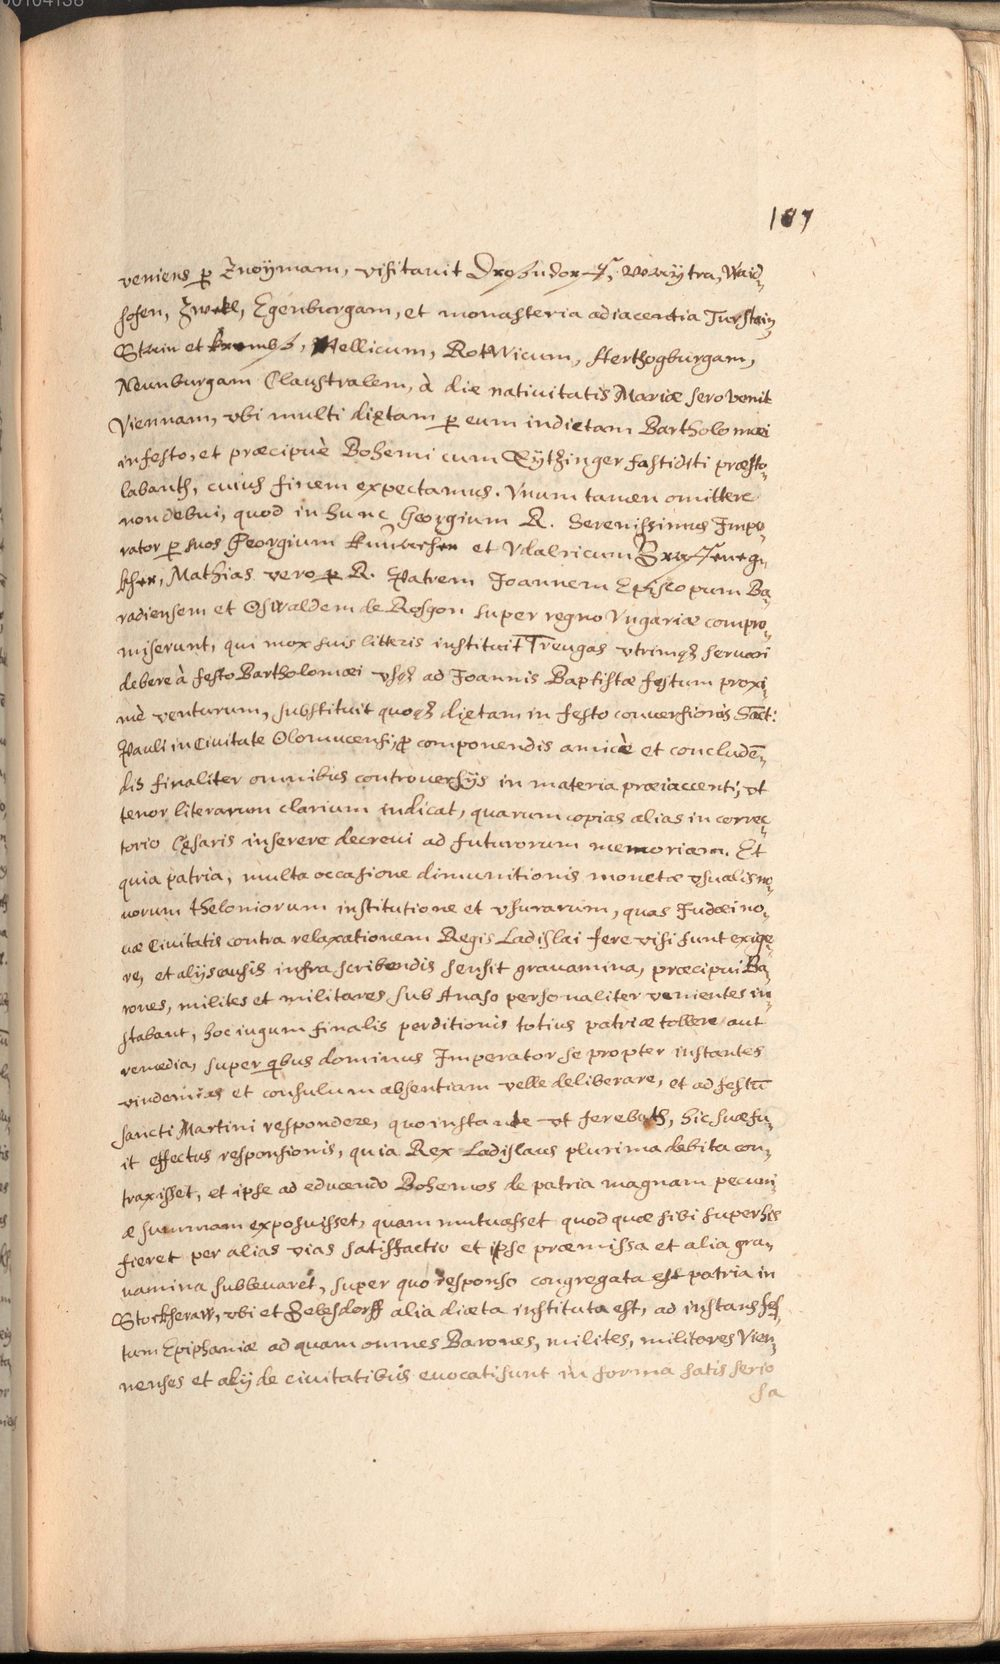 00104138
187
veniens ꝑ Znoÿmam, visitavit Drosendorf, weÿtra, Waid„
hofen, Zwetl, Egenburgam, et monasteria adiacentia Turstain
Stain et krembs, Mellicum, Rotwicum, Herthogburgam,
Neunburgam Claustralem, à die nativitatis Mariæ sero venit
Viennam, vbi multi diętam ꝑ eum indictam Bartholomæi
in festo, et præcipuè Bohemi cum Eÿtzinger fastiditi præsto„
labantr, cuius finem expectamus. Vnum tamen omittere
non debui, quod in hunc Georgium R. Serenissimus Impe„
rator ꝑ suos Georgium et Vdalricum
Mathias vero ꝑ R. Patrem Joannem Episcopum Ba„
radiensem et Oswaldem de Rosgon super regno Vngariæ compro„
miserunt, qui mox suis litteris instituit Treugas vtrimqꝫ servari
debere à festo Bartholomæi vsqꝫ ad Joannis Baptistæ festum proxi„
mè venturum, substituit quoqꝫ diętam in festo conversionis Sact:
Pauli in Civitate Olomucensi, ꝓ componendis amicè et concludē„
dis finaliter omnibus controversijs in materia præiaccenti, vt
tenor literarum clarium indicat, quarum copias alias in correc„
torio Cęsaris inserere decrevi ad futurorum memoriam. Et
quia patria, multa occasione dimunitionis monetæ vsualis no„
uorum theloniorum institutione et vsurarum, quas Judæi no„
uæ Civitatis contra relaxationem Regis Ladislai fere visi sunt exige„
re, et alijs causis infra scribendis sensit gravamina, præcipui Ba„
rones, milites et militares sub Anaso personaliter venientes in„
stabant, hoc iugum finalis perditionis totius patriæ tollere aut
remedia, super qbus dominus Imperator se propter instantes
vindemias et consulum absentiam velle deliberare, et ad festū
sancti Martini respondere, quo instante vt ferebatr, hic suæ fu„
it effectus responsionis, quia Rex Ladislaus plurima debita con„
traxisset, et ipse ad educendo Bohemos de patria magnam pecuni„
æ summam exposuisset, quam mutuasset quod quæ sibi super his
fieret per alias vias satisfactio et ipse præmissa et alia gra„
uamina subleuaret, super quo responso congregata est patria in
Stockheraw, vbi et Zebesdorff alia diæta instituta est, ad instans fes„
tum Epiphaniæ ad quam omnes Barones, milites, militares Vien„
nenses et alij de civitatibus euocati sunt in forma satis serio
sa